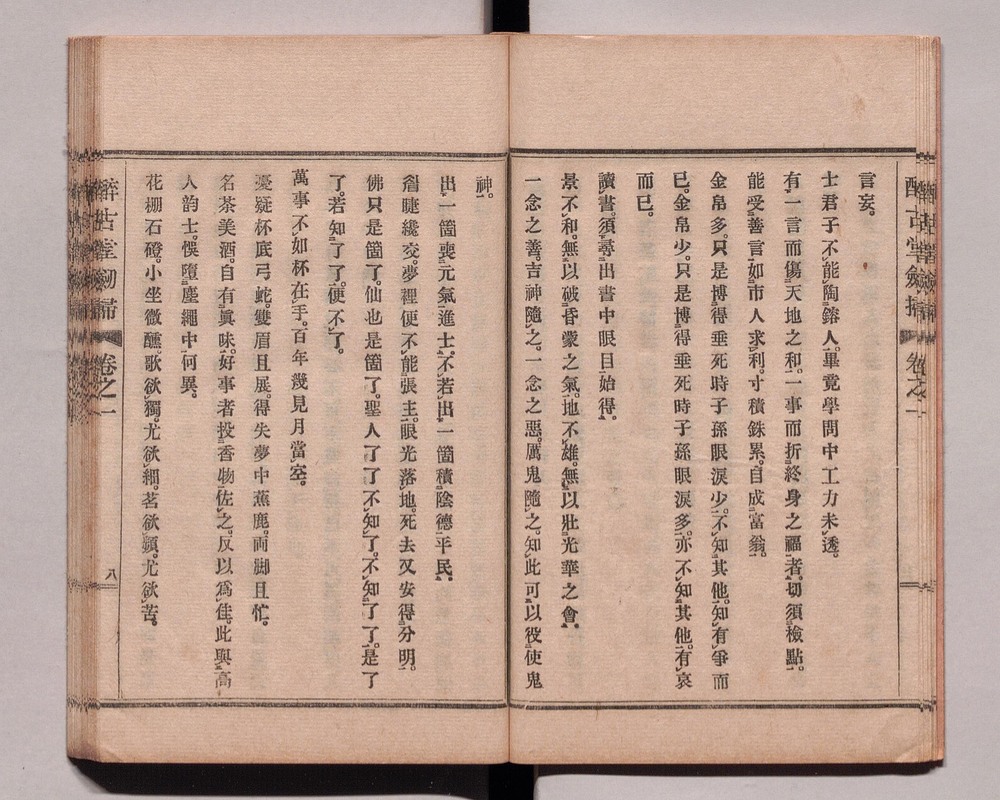 言妄。
士君子不能陶鎔人。畢竟學問中工力未透。
有一言而傷天地之和。一事而折終身之福者。切須檢點。
能受善言。如市人求利。寸積銖累。自成富翁。
金帛多。只是博得垂死時子孫眼淚少。不知其他。知有爭而
已。金帛少。只是博得垂死時子孫眼淚多。亦不知其他。有哀
而已。
讀書。須尋出書中眼目始得。
景不和。無以破昏蒙之氣。地不雄。無以壯光華之會。
一念之善。吉神隨之。一念之惡。厲鬼隨之。知此可以役使鬼
神。
出一箇喪元氣進士。不若出一箇積陰德平民。
眉睫纔交。夢裡便不能張主。眼光落地。死去又安得分明。
佛只是箇了。仙也是箇了。聖人了了不知了。不知了了。是了
了。若知了了。便不了。
萬事不如杯在手。百年幾見月當空。
憂疑杯底弓蛇。雙眉且展。得失夢中蕉鹿。兩脚且忙。
名茶美酒。自有眞味。好事者投香物佐之。反以爲佳。此與高
人韵士。悞墮塵網中何異。
花棚石磴。小坐微醺。歌欲獨。尤欲細。茗欲頻。尤欲苦。
醉古堂劒掃
卷之一
八